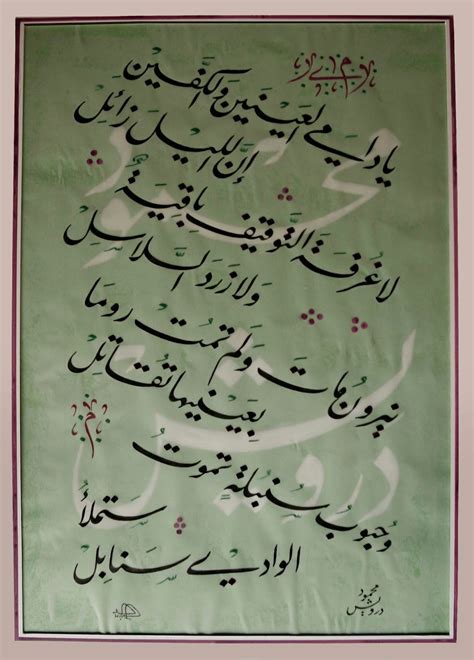 يا دامي العَينين والكفّين
إنّ الليل زائل
لا غُرفة التَّوقيف باقية
ولا زرد السَّلاسل
نيرون مات ولم تمت روما
بعينيها تقاتل
وحبوب سنبلةٍ تموت
ستملأُ
الوادي سنابل
محمود
درويش
محمود
درويش